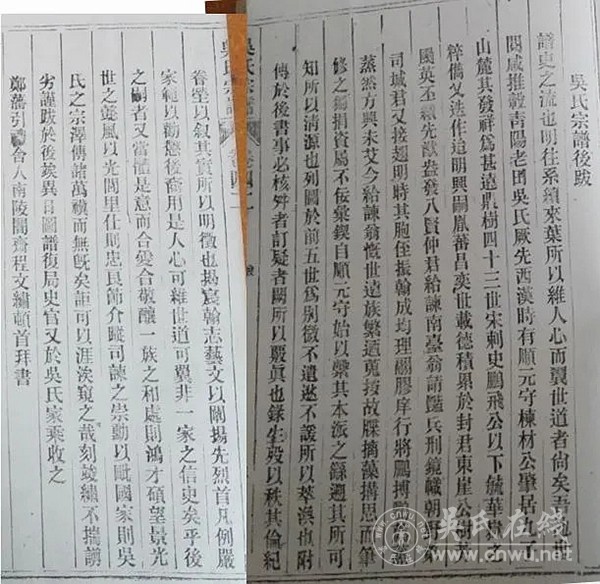 吳氏宗譜後跋
譜史之流也明往系續來葉所以維人心而翼世道者尚矣吾九
閥咸推轂青陽老田吳氏厥先西漢時有順元守棟材公肇居九
山麓其發祥為甚遠鼎樹四十三世宋刺史鵬飛公以下毓華
粹儁乂迭作迨明興嗣胤蕃昌奕世載德積累於封君東崖公尉
颺英丕纘先猷益發八賢仲君給諫南臺翁請豔兵刑鏡幟朝
司城君又接趨明時其胞侄振翰成均理翮膠庠行將鵬搏
蒸然方興未艾今給諫翁慨世遠族繁迺蒐按故牒摛藻搆思而筆
修之錫捐資屬不佞彙鍥自順元守始以縶其本派之繇遡其所
知所以清源也列圖於前五世為別徵不遺遐不諼所以萃渙也附
傳於後書事必核舛者訂疑者闕所以嚴眞也錄生歿以秩其倫紀
眷塋以叙其實所以明徵也揭宸翰志藝文以闡揚先烈首凡例嚴
家範以勸懲後裔用是人心可維世道可翼非一家之信史矣乎後
之嗣者又當體是意而合爱合敬釀一族之和處則鴻才碩望景光
世之懿風以光閭里仕則忠艮節介蹤司諫之崇勳以毗國家則吳
氏之宗澤傳諸萬禩而無旣矣詎可以涯涘窺之哉刻竣繡不揣譾
劣謹跋於後矣異日圖譜復局史官又於吳氏家乘收之
鄭藩引舍人南陵閣齋程文繡頓首拜書
吳氏宗譜
卷四十一
吳氏在綫
www.cnwu.net
CNWU.NET